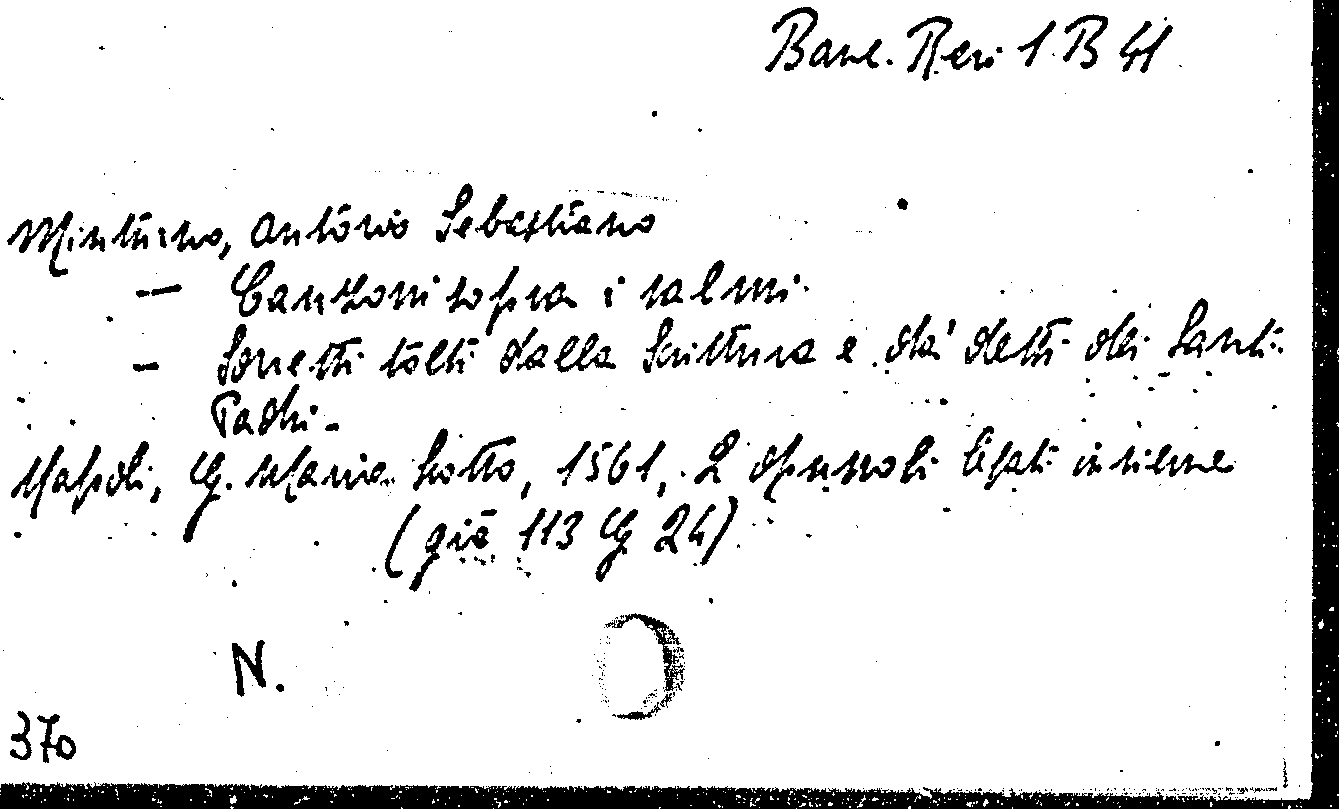 Banc. Rari 1 B 41
Minturno, Antonio Sebastiano
— Canzoni sopra i salmi.
— Sonetti tolti dalla Scrittura e da' detti dei Santi
Padri -
Napoli, G. Maria Scotto, 1561, 2 opuscoli legati insieme
(già 113 G 24)
N.
370